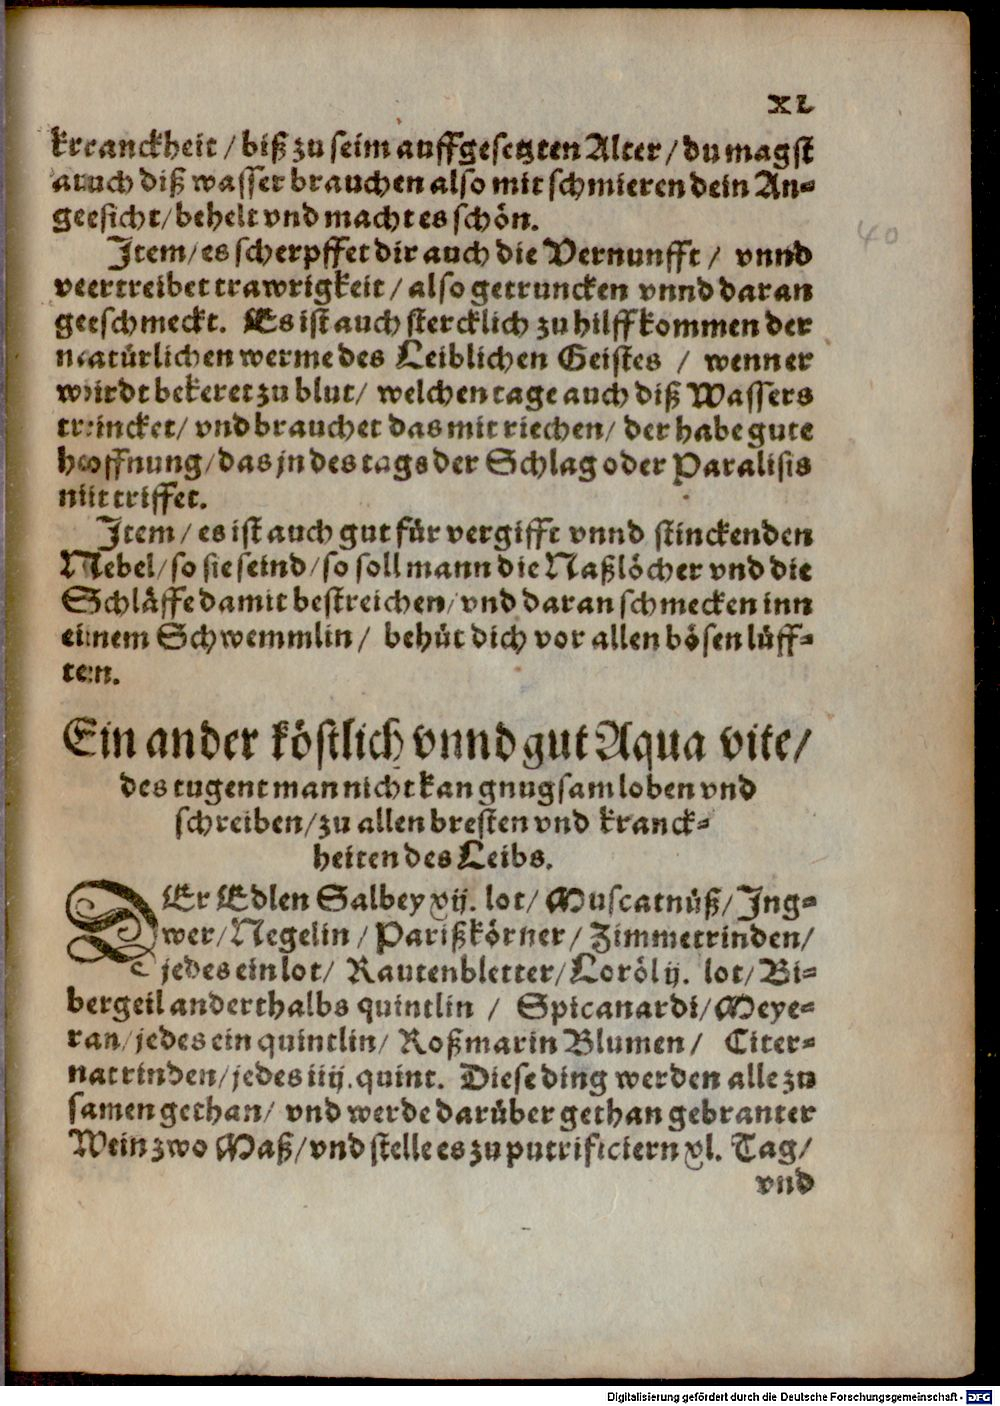 XL
kranckheit / biß zu seim auffgesetzten Alter / du magst
auch diß wasser brauchen also mit schmieren dein An⸗
gesicht / behelt vnd macht es schön.
40
Item / es scherpffet dir auch die Vernunfft / vnnd
vertreibet trawrigkeit / also getruncken vnnd daran
geschmeckt. Es ist auch stercklich zu hilff kommen der
natürlichen werme des Leiblichen Geistes / wenn er
wirdt bekeret zu blut / welchen tage auch diß Wassers
trincket / vnd brauchet das mit riechen / der habe gute
hoffnung / das jn des tags der Schlag oder Paralisis
nit triffet.
Item / es ist auch gut für vergifft vnnd stinckenden
Nebel / so sie seind / so soll mann die Naßlöcher vnd die
Schläffe damit bestreichen / vnd daran schmecken inn
einem Schwemmlin / behüt dich vor allen bösen lüff⸗
ten.
Ein ander köstlich vnnd gut Aqua vite /
des tugent man nicht kan gnugsam loben vnd
schreiben / zu allen bresten vnd kranck⸗
heiten des Leibs.
DEr Edlen Salbey xij. lot / Muscatnüß / Ing⸗
wer / Negelin / Parißkörner / Zimmetrinden /
jedes ein lot / Rautenbletter / Loröl ij. lot / Bi⸗
bergeil anderthalbs quintlin / Spicanardi / Meye⸗
ran / jedes ein quintlin / Roßmarin Blumen / Citer⸗
natrinden / jedes iiij. quint. Diese ding werden alle zu
samen gethan / vnd werde darüber gethan gebranter
Wein zwo Maß / vnd stelle es zu putrificiern xl. Tag /
vnd
Digitalisierung gefördert durch die Deutsche Forschungsgemeinschaft - DFG